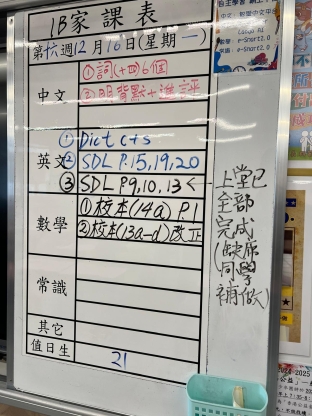 1B家課表
第十六週12月16日(星期一)
中文
①詞(十四)6個
②明背默+進評
英文
① Dict c+s
② SDL P.15,19,20
③ SDL P9,10,13
數學
①校本(14a) P.1
②校本(13a-d)改正
常識
其它
值日生
21
上堂已
全部
完成
(缺席
同學
補做)
自主學習
e-Smart2.0
e-Smart2.0
2024-2025